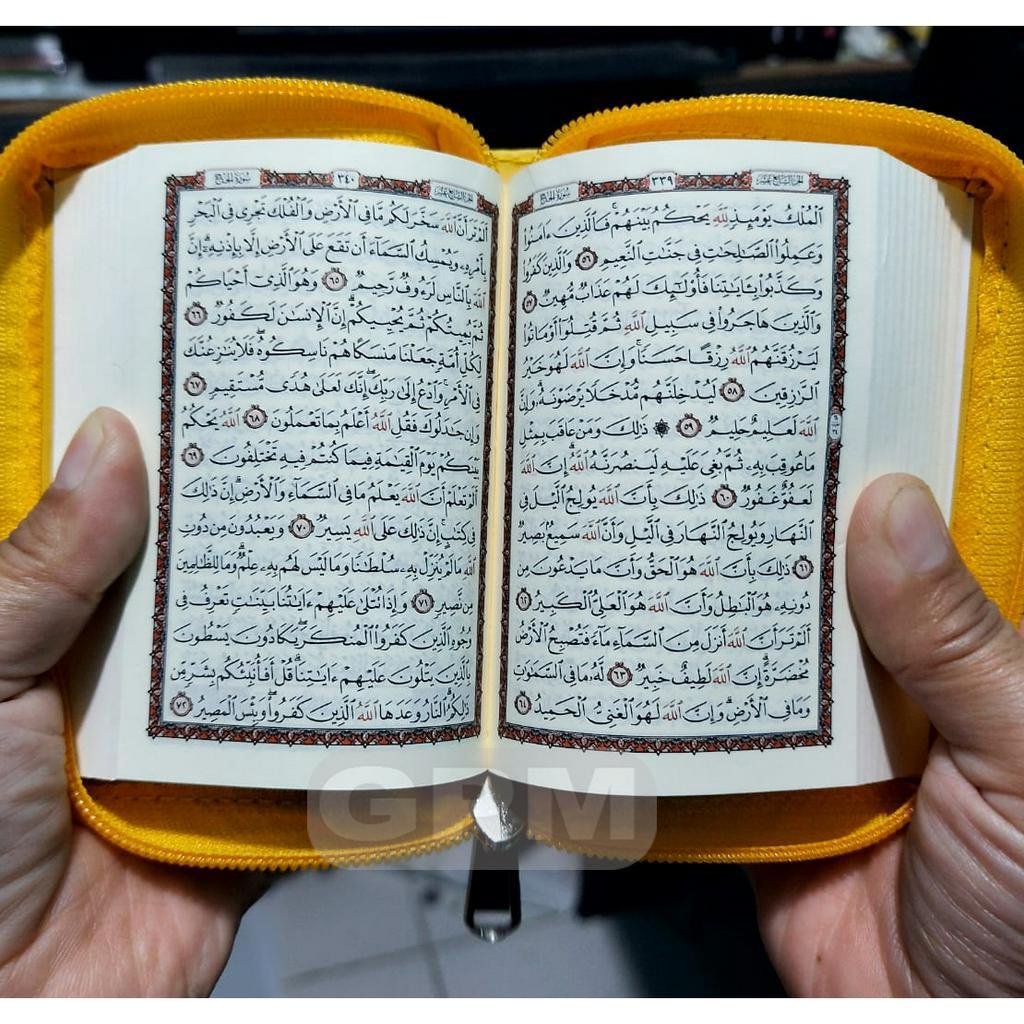 سورة الحج
٣٣٩
الجزء السابع عشر
ٱلْمُلْكُ يَوْمَئِذٍ لِّلَّهِ يَحْكُمُ بَيْنَهُمْ ۚ فَٱلَّذِينَ ءَامَنُوا۟
وَعَمِلُوا۟ ٱلصَّٰلِحَٰتِ فِى جَنَّٰتِ ٱلنَّعِيمِ ٥٦ وَٱلَّذِينَ كَفَرُوا۟
وَكَذَّبُوا۟ بِـَٔايَٰتِنَا فَأُو۟لَٰٓئِكَ لَهُمْ عَذَابٌ مُّهِينٌ ٥٧
وَٱلَّذِينَ هَاجَرُوا۟ فِى سَبِيلِ ٱللَّهِ ثُمَّ قُتِلُوٓا۟ أَوْ مَاتُوا۟
لَيَرْزُقَنَّهُمُ ٱللَّهُ رِزْقًا حَسَنًا ۚ وَإِنَّ ٱللَّهَ لَهُوَ خَيْرُ
ٱلرَّٰزِقِينَ ٥٨ لَيُدْخِلَنَّهُم مُّدْخَلًا يَرْضَوْنَهُۥ ۗ وَإِنَّ
ٱللَّهَ لَعَلِيمٌ حَلِيمٌ ٥٩ ۞ ذَٰلِكَ وَمَنْ عَاقَبَ بِمِثْلِ
مَا عُوقِبَ بِهِۦ ثُمَّ بُغِىَ عَلَيْهِ لَيَنصُرَنَّهُ ٱللَّهُ ۗ إِنَّ ٱللَّهَ
لَعَفُوٌّ غَفُورٌ ٦٠ ذَٰلِكَ بِأَنَّ ٱللَّهَ يُولِجُ ٱلَّيْلَ فِى
ٱلنَّهَارِ وَيُولِجُ ٱلنَّهَارَ فِى ٱلَّيْلِ وَأَنَّ ٱللَّهَ سَمِيعٌۢ بَصِيرٌ
٦١ ذَٰلِكَ بِأَنَّ ٱللَّهَ هُوَ ٱلْحَقُّ وَأَنَّ مَا يَدْعُونَ مِن
دُونِهِۦ هُوَ ٱلْبَٰطِلُ وَأَنَّ ٱللَّهَ هُوَ ٱلْعَلِىُّ ٱلْكَبِيرُ ٦٢
أَلَمْ تَرَ أَنَّ ٱللَّهَ أَنزَلَ مِنَ ٱلسَّمَآءِ مَآءً فَتُصْبِحُ ٱلْأَرْضُ
مُخْضَرَّةً ۗ إِنَّ ٱللَّهَ لَطِيفٌ خَبِيرٌ ٦٣ لَّهُۥ مَا فِى ٱلسَّمَٰوَٰتِ
وَمَا فِى ٱلْأَرْضِ ۗ وَإِنَّ ٱللَّهَ لَهُوَ ٱلْغَنِىُّ ٱلْحَمِيدُ ٦٤
سورة الحج
٣٤٠
الجزء السابع عشر
أَلَمْ تَرَ أَنَّ ٱللَّهَ سَخَّرَ لَكُم مَّا فِى ٱلْأَرْضِ وَٱلْفُلْكَ تَجْرِى فِى ٱلْبَحْرِ
بِأَمْرِهِۦ وَيُمْسِكُ ٱلسَّمَآءَ أَن تَقَعَ عَلَى ٱلْأَرْضِ إِلَّا بِإِذْنِهِۦٓ ۗ إِنَّ
ٱللَّهَ بِٱلنَّاسِ لَرَءُوفٌ رَّحِيمٌ ٦٥ وَهُوَ ٱلَّذِىٓ أَحْيَاكُمْ
ثُمَّ يُمِيتُكُمْ ثُمَّ يُحْيِيكُمْ ۗ إِنَّ ٱلْإِنسَٰنَ لَكَفُورٌ ٦٦
لِّكُلِّ أُمَّةٍ جَعَلْنَا مَنسَكًا هُمْ نَاسِكُوهُ ۖ فَلَا يُنَٰزِعُنَّكَ
فِى ٱلْأَمْرِ ۚ وَٱدْعُ إِلَىٰ رَبِّكَ ۖ إِنَّكَ لَعَلَىٰ هُدًى مُّسْتَقِيمٍ ٦٧
وَإِن جَٰدَلُوكَ فَقُلِ ٱللَّهُ أَعْلَمُ بِمَا تَعْمَلُونَ ٦٨ ٱللَّهُ يَحْكُمُ
بَيْنَكُمْ يَوْمَ ٱلْقِيَٰمَةِ فِيمَا كُنتُمْ فِيهِ تَخْتَلِفُونَ ٦٩
أَلَمْ تَعْلَمْ أَنَّ ٱللَّهَ يَعْلَمُ مَا فِى ٱلسَّمَآءِ وَٱلْأَرْضِ ۗ إِنَّ ذَٰلِكَ
فِى كِتَٰبٍ ۚ إِنَّ ذَٰلِكَ عَلَى ٱللَّهِ يَسِيرٌ ٧٠ وَيَعْبُدُونَ مِن دُونِ
ٱللَّهِ مَا لَمْ يُنَزِّلْ بِهِۦ سُلْطَٰنًا وَمَا لَيْسَ لَهُم بِهِۦ عِلْمٌ ۗ وَمَا لِلظَّٰلِمِينَ
مِن نَّصِيرٍ ٧١ وَإِذَا تُتْلَىٰ عَلَيْهِمْ ءَايَٰتُنَا بَيِّنَٰتٍ تَعْرِفُ فِى
وُجُوهِ ٱلَّذِينَ كَفَرُوا۟ ٱلْمُنكَرَ ۖ يَكَادُونَ يَسْطُونَ
بِٱلَّذِينَ يَتْلُونَ عَلَيْهِمْ ءَايَٰتِنَا ۗ قُلْ أَفَأُنَبِّئُكُم بِشَرٍّ مِّن
ذَٰلِكُمُ ۗ ٱلنَّارُ وَعَدَهَا ٱللَّهُ ٱلَّذِينَ كَفَرُوا۟ ۖ وَبِئْسَ ٱلْمَصِيرُ ٧٢
GRM